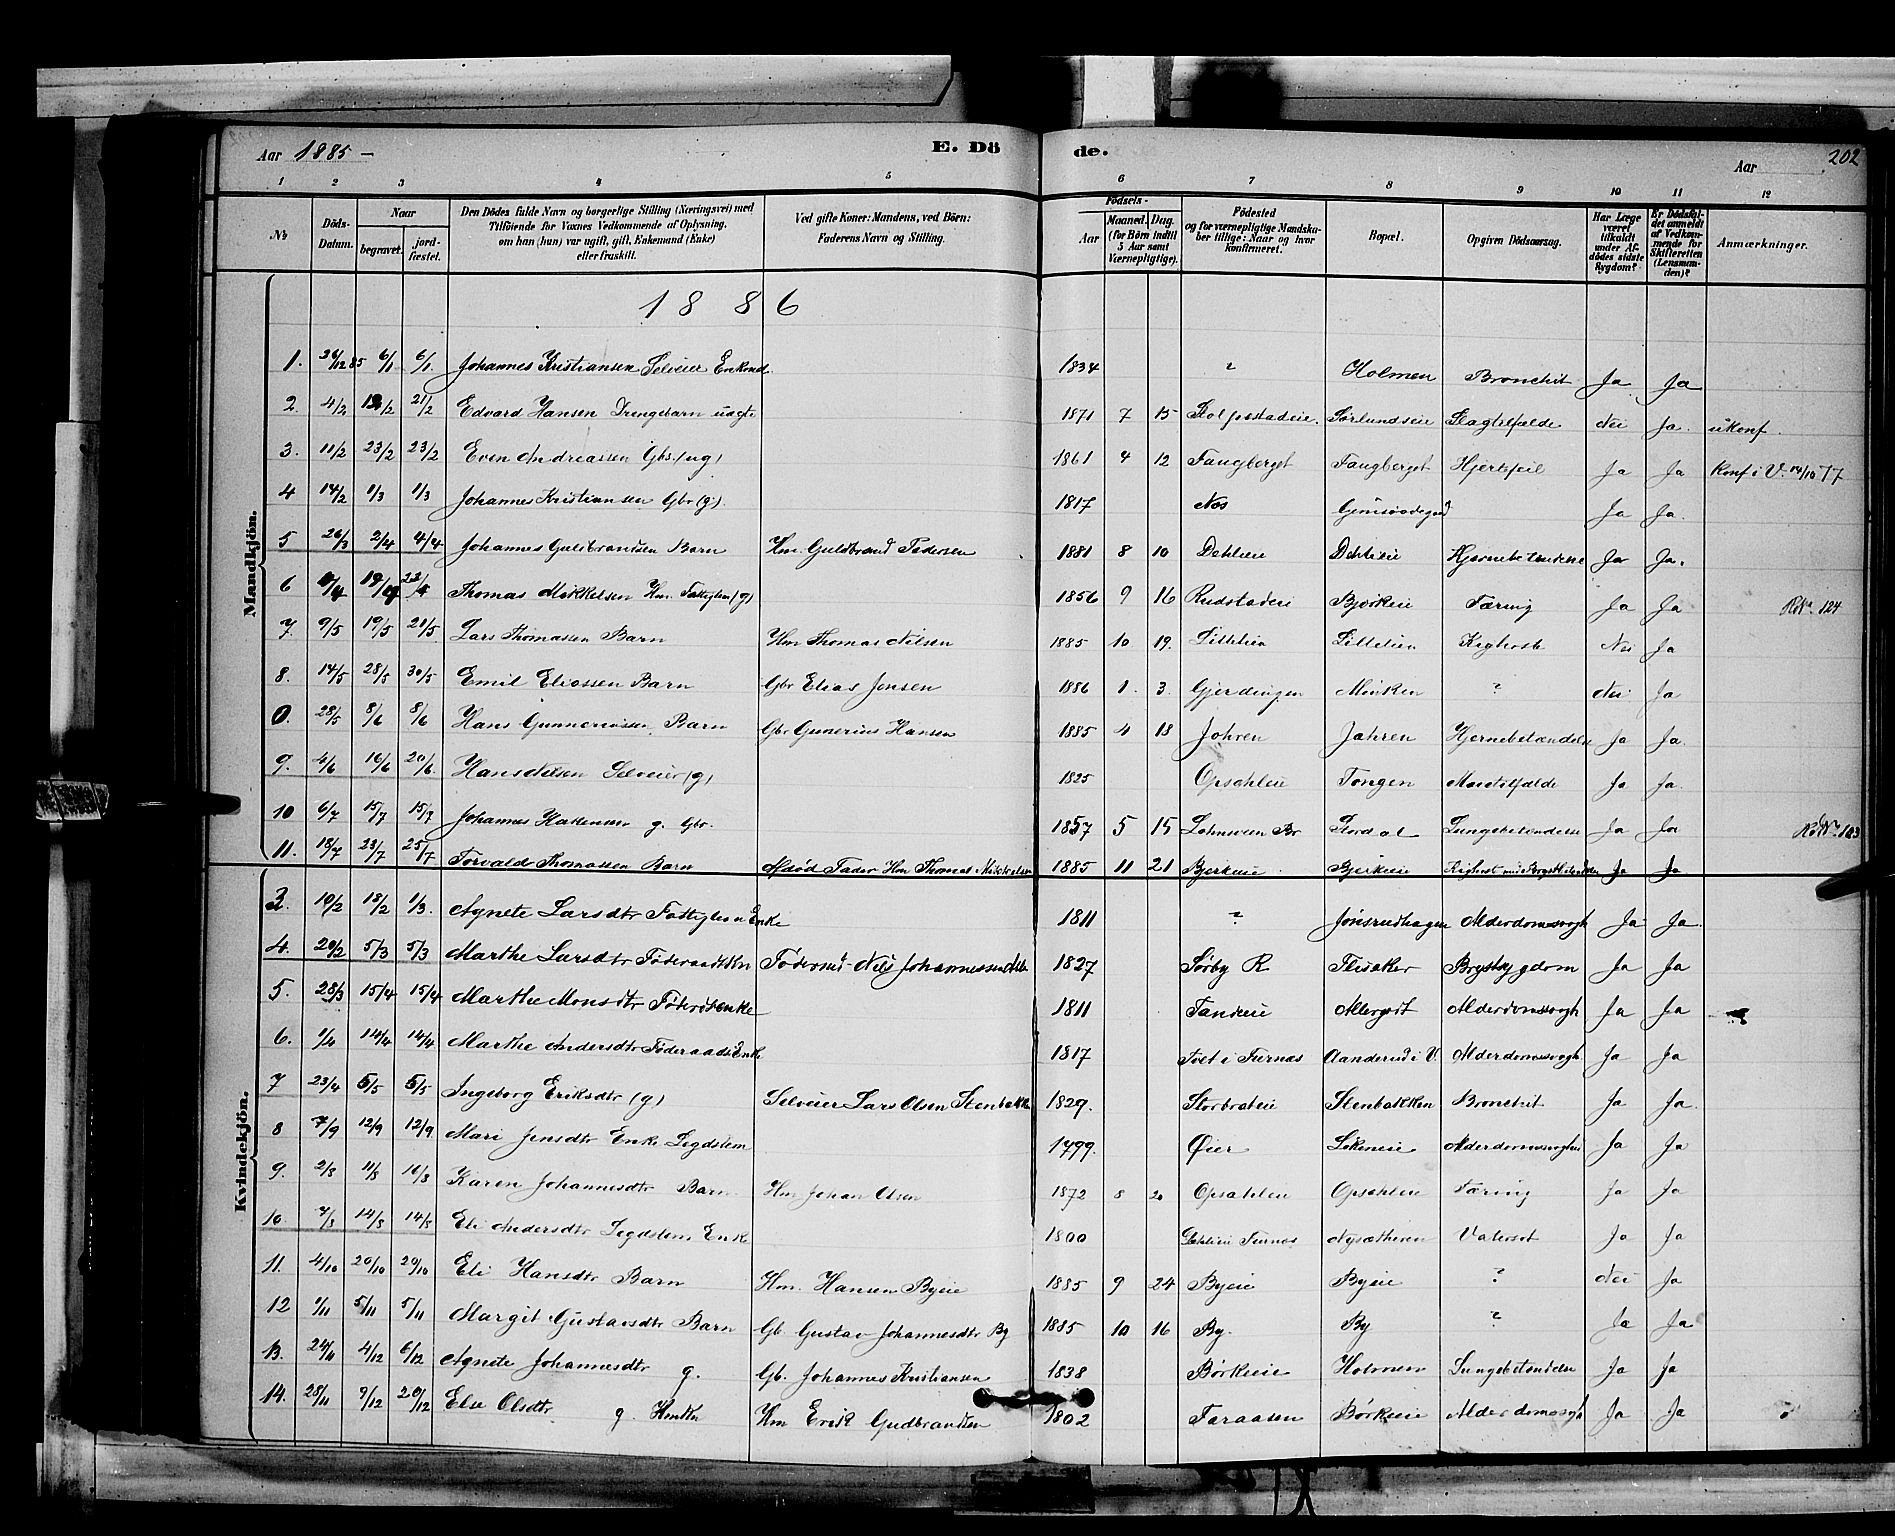 Aar 1885 – E. Dö de. Aar 202
1 2 3 4 5 6 7 8 9 10 11 12
No Döds-Datum. Naar begravet. jordfæstet. Den Dödes fulde Navn og borgerlige Stilling (Næringsvei) med Tilföiende for Voxnes Vedkommende af Oplysning, om han (hun) var ugift, gift, Enkemand (Enke) eller fraskilt. Ved gifte Koner: Mandens, ved Börn: Faderens Navn og Stilling. Födsels- Aar Maaned. Dag. (for Börn indtil 5 Aar samt Værnepligtige). Födested og for værnepligtige Mandskaber tillige: Naar og hvor konfirmeret. Bopæl. Opgiven Dödsaarsag. Har Læge været tilkaldt under Afdödes sidste Sygdom? Er Dödsfaldet anmeldt af Vedkommende for Skifteretten (Lensmanden)? Anmærkninger.
Mandkjön.
1886
1. 6/1 6/1. Johannes Kristiansen Selveier Enkmd. 1834 " Holmen Bronchit Ja Ja
2. 4/2 21/2 Edvard Hansen Drengebarn 1871 7 15 Slagtilfælde Nei Ja. ukonf.
3. 11/2 23/2 23/2 Even Andreassen Gbs. (ug) 1861 4 12 Faugberget Faugberget Hjertefeil Ja Ja Konf i V. 14/10 77
4 14/2 1/3 1/3 Johannes Kristiansen Gbr (g). 1817 Næs Ja Ja.
5 26/3 2/4 4/4 Johannes Guldbrandsen Barn Hm. Guldbrand Pedersen 1881 8 10 Dehlieie Dehlieie Hjernebetændelse Ja Ja.
6 19/4 Thomas Mikkelsen Hm. (g) 1856 9 16 Rudstadeie Bjerkeie Tæring Ja Ja 124
7. 9/5 19/5 21/5 Lars Thomassen Barn Hm Thomas Nilsen 1885 10 19. Lillelien Lillelien Kighoste Nei Ja
8. 14/5 28/5 30/5 Emil Eliassen Barn Gbr Elias Jensen 1886 1. 3. Gjerdingen ? Nei Ja
0. 28/5 8/6 8/6 Hans Gunneriusen Barn Gbr Gunerius Hansen 1885 4 18 Jahren Jahren Hjernebetændelse Ja Ja.
9. 4/6 16/6 20/6. Hans Nilsen Selveier (g) 1825 Opsahleie Tangen Ja Ja.
10 6/7 15/7 15/7 Johannes g. Gbr. 1857 5 15 Lungebetændelse Ja Ja
11. 18/7 23/7 25/7 Torvald Thomassen Barn Afdød Fader Hm Thomas Mikkelsen 1885 11 21 Bjerkeie Bjerkeie Ja Ja
Kvindekjön.
3. 10/2 18/2 1/3. Agnete Larsdtr Enke 1811 ? Jønsrudhagen Alderdomssvagh Ja Ja.
4. 20/2 5/3 5/3 Marthe Larsdtr Nils Johannessen 1827 Sørby R Flisaker Brystsygdom Ja Ja
5. 28/3 15/4 15/4 Marthe Monsdtr 1811 Alderdomssvagh Ja Ja
6. 1/4 14/4 14/4 Marthe Andersdtr Føderaadsenke 1817 i Furnæs Aanderud i V. Alderdomssvagh. Ja Ja
7 23/4 5/5 5/5 Ingeborg Eriksdtr (g) Selveier Lars Olsen Stenbakken 1829. Storbrateie Stenbakken Bronchit Ja Ja.
8 7/9 12/9 12/9 Mari Jensdtr Enke Legdslem 1799. Øier Løkeneie Alderdomssvaghed Ja Ja
9. 2/8 11/8 Karen Johannesdtr Barn Hm Johan Olsen 1872 8 20 Opsahleie Opsahleie Tæring Ja Ja
10. 14/8 14/8 Eli Andersdtr Legdslem Enke 1800 Furnæs Nysætheren Vatersot Ja Ja
11. 4/10 20/10 20/10 Eli Hansdtr Barn Hm. Hansen Byeie 1885 9 24 Byeie Byeie ? Nei Ja
12 1/11 5/11 5/11 Margit Gustavsdtr Barn Gb. Gustav Johannesdtr By 1885 10 16 By. By ? Ja Ja
13. 24/11 4/12 6/12 Agnete Johannesdtr g. Gb. Johannes Kristiansen 1838 Børkeeie Holmen Lungebetændelse Ja Ja
14. 28/11 9/12 20/12 Else Olsdtr g. Hmkn Hm Erik Gudbrandsen 1802 Faraasen Børkeeie Alderdomssvgh Ja Ja